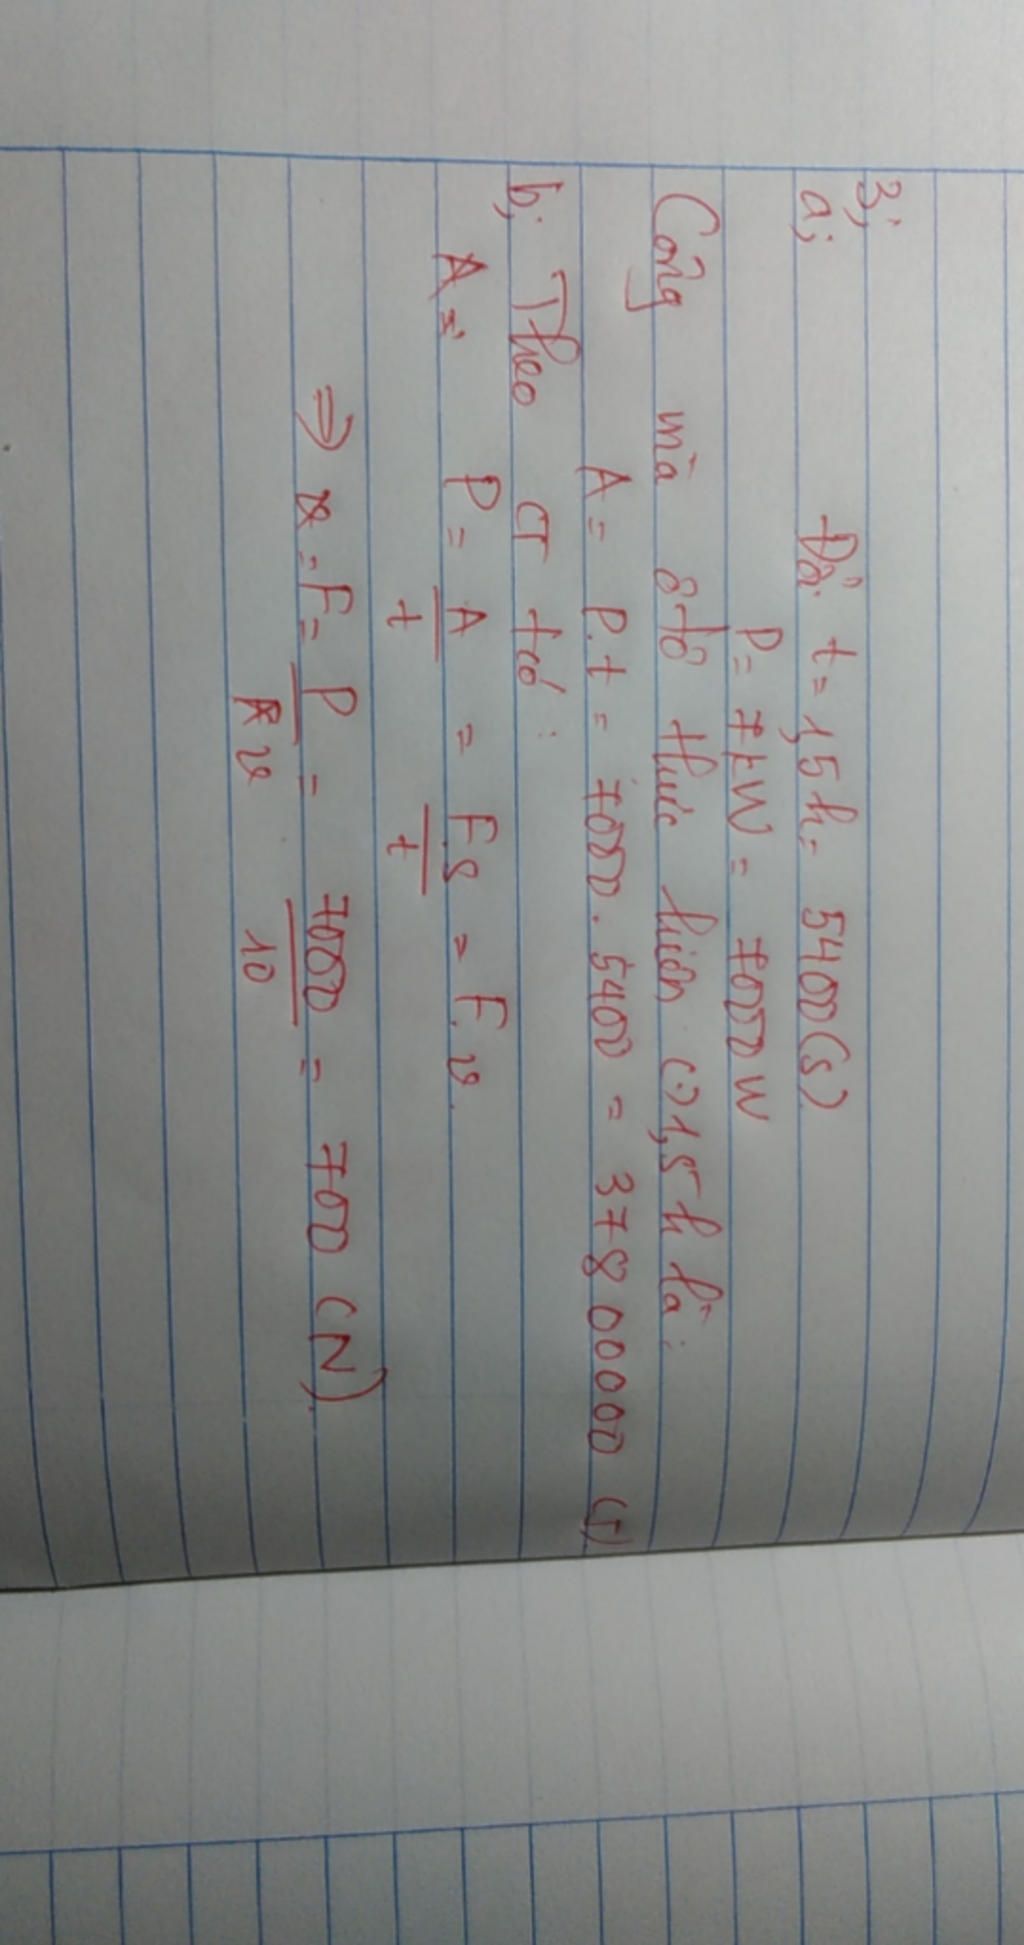 3;
a; Đổi t = 1,5h = 5400(s)
P = 7kW = 7000W
Công mà ô tô thực hiện (.) 1,5h là:
A = P.t = 7000.5400 = 37800000 (J)
b; Theo CT t có:
A = P = A/t = F.s/t = F.v.
⇒ F = P/v = 7000/10 = 700 (N).